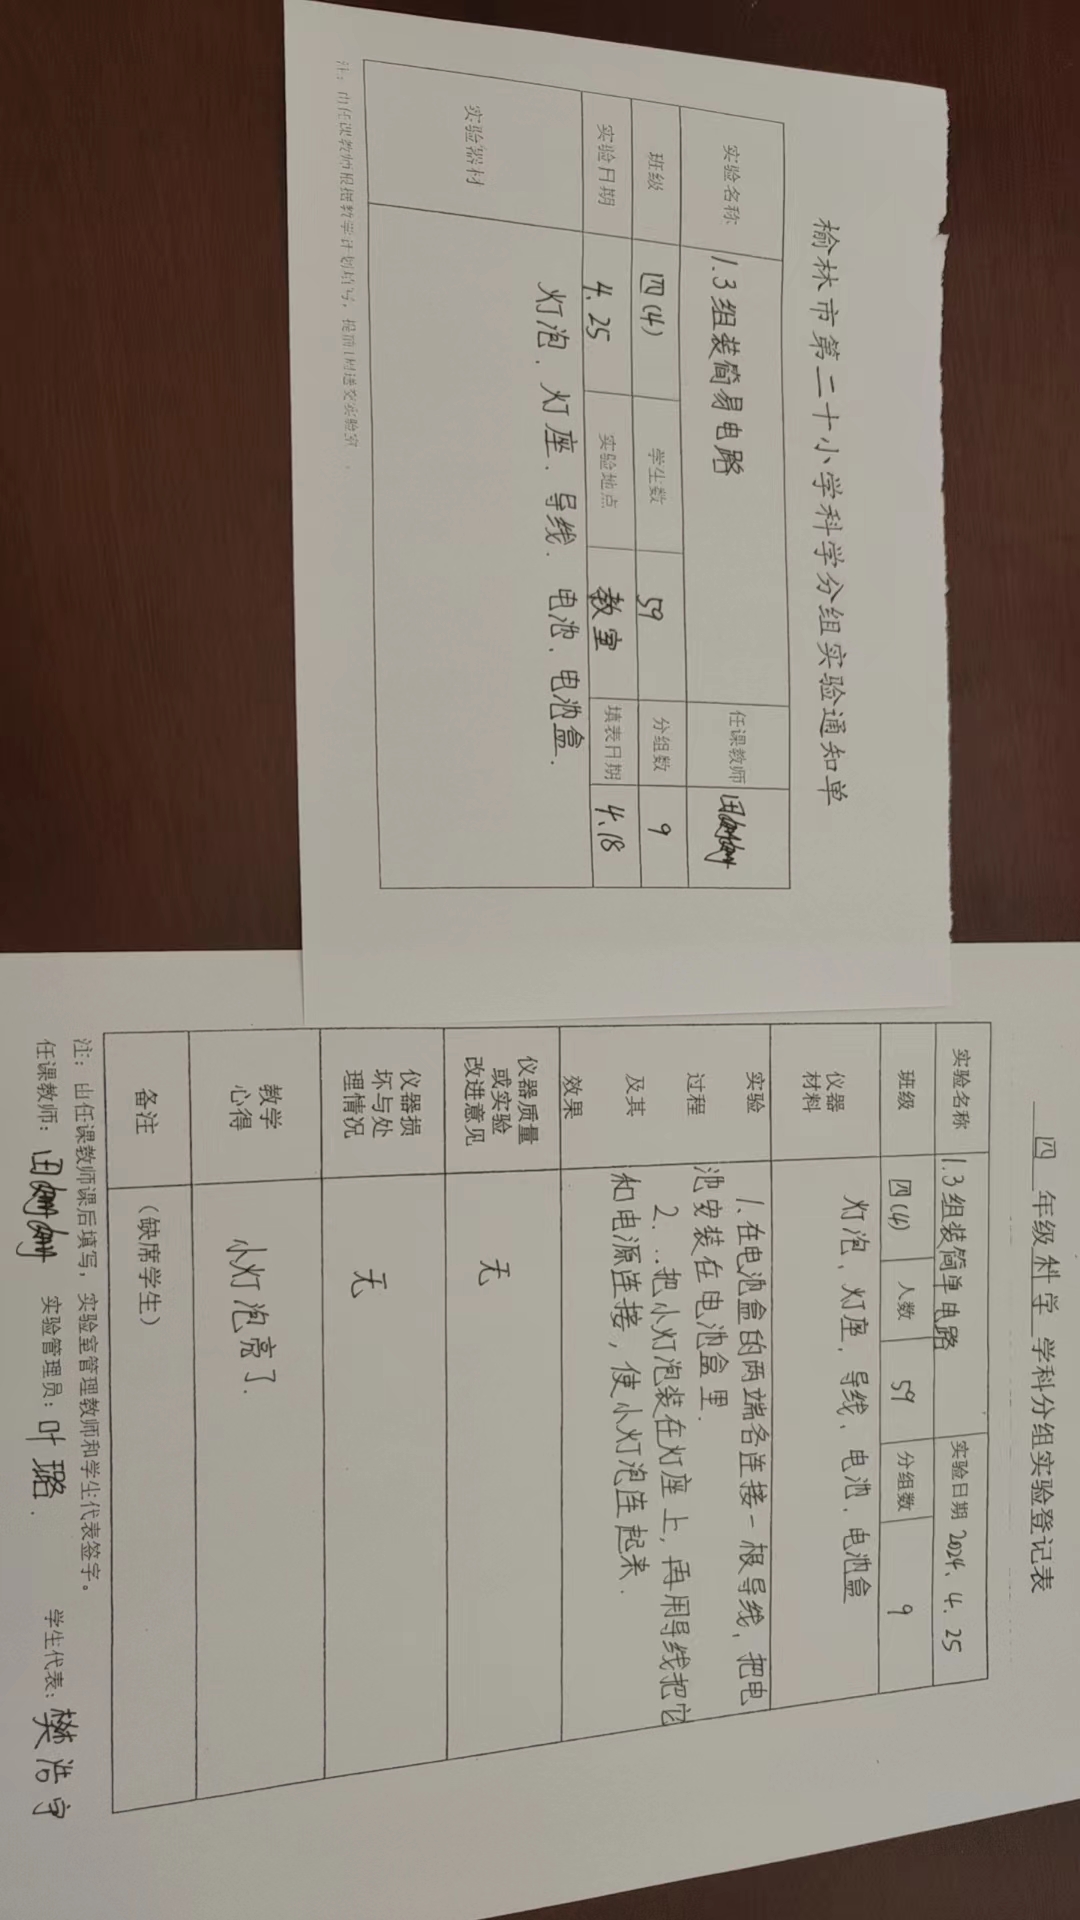 榆林市第二十小学科学分组实验通知单
实验名称 1.3组装简易电路 任课教师 田
班级 四(4) 学生数 59 分组数 9
实验日期 4.25 实验地点 教室 填表日期 4.18
实验器材 灯泡、灯座、导线、电池、电池盒.
注：由任课教师根据教学计划填写，提前1周送交实验室.
四 年级 科学 学科分组实验登记表
实验名称 1.3组装简单电路 实验日期 2024.4.25
班级 四(4) 人数 59 分组数 9
仪器材料 灯泡、灯座、导线、电池、电池盒
实验过程及其效果
1.在电池盒的两端各连接一根导线，把电
池安装在电池盒里.
2...把小灯泡装在灯座上，再用导线把它
和电源连接，使小灯泡连起来.
仪器质量或实验改进意见 无
仪器损坏与处理情况 无
教学心得 小灯泡亮了.
备注 (缺席学生)
注：由任课教师课后填写，实验室管理教师和学生代表签字。
任课教师：田 实验管理员：叶璐. 学生代表：樊浩宇